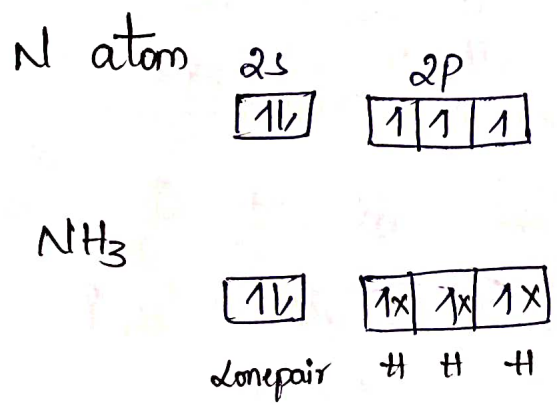 N atom 2s 2p
1L 1 1 1
NH3
1L 1x 1x 1x
Lonepair H H H